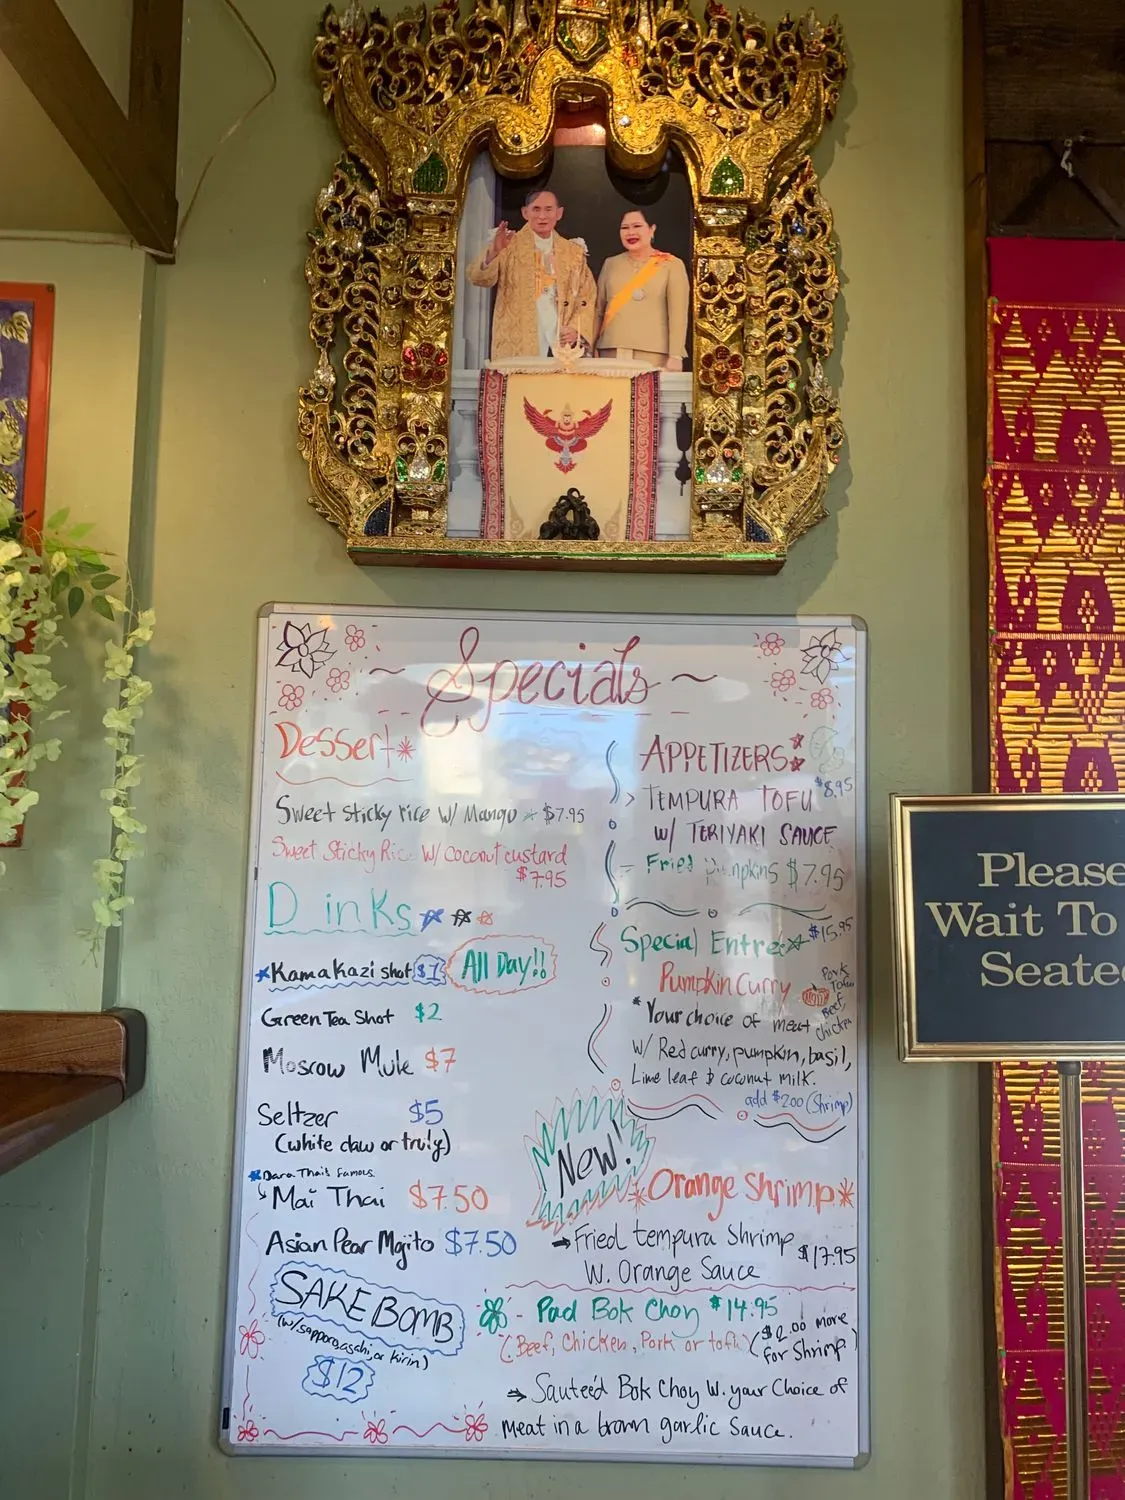 ~ Specials ~
Dessert
Sweet sticky rice w/ Mango $7.95
Sweet Sticky Ric w/ coconut custard
$7.95
D inKs
*Kamakazi shot $1 All Day!!
Green Tea Shot $2
Moscow Mule $7
Seltzer $5
(white claw or truly)
*Dara Thai's famous
Mai Thai $7.50
Asian Pear Mojito $7.50
SAKE BOMB
(w/sapporo, asahi, or kirin)
$12
APPETIZERS
> TEMPURA TOFU $8.95
w/ TERIYAKI SAUCE
- Fried pumpkins $7.95
Special Entree $15.95
Pumpkin Curry
Pork
Tofu
Beef,
chicken
*Your choice of meat
w/ Red curry, pumpkin, basil,
Lime leaf & coconut milk.
add $2.00 (Shrimp)
New!
*Orange Shrimp*
→Fried tempura Shrimp $17.95
W. Orange Sauce
- Pad Bok Choy $14.95
(Beef, Chicken, Pork or tofu) ($2.00 more
for Shrimp)
⇒ Sauteéd Bok Choy W. your Choice of
meat in a brown garlic Sauce.
Please
Wait To
Seated